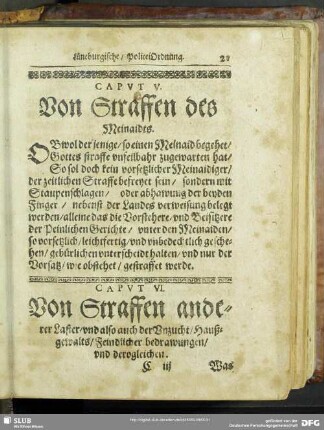 Lüneburgische / PoliceiOrdnung. 21
CAPVT V.
Von Straffen des
Meinaides.
OBwol der jenige / so einen Meinaid begehet /
Gottes straffe vnfeilbahr zugewarten hat /
So sol doch kein vorsetzlicher Meinaidiger /
der zeitlichen Straffe befreyet sein / sondern mit
Staupenschlagen / oder abhawung der beyden
Finger / nebenst der Landes verweisung belegt
werden / alleine das die Vorstehere / vnd Beisitzere
der Peinlichen Gerichte / vnter den Meinaiden /
so vorsetzlich / leichtfertig / vnd vnbedechtlich gesche-
hen / gebürlichen vnterscheidt halten / vnd nur der
Vorsatz / wie obstehet / gestraffet werde.
CAPVT VI.
Von Straffen ande-
rer Laster / vnd also auch der Vnzucht / Hauß-
gewalts / Feindlicher bedrawungen /
vnd derogleichen.
C iij Was
SLUB
Wir führen Wissen.
gefördert von der
DFG
Deutschen Forschungsgemeinschaft